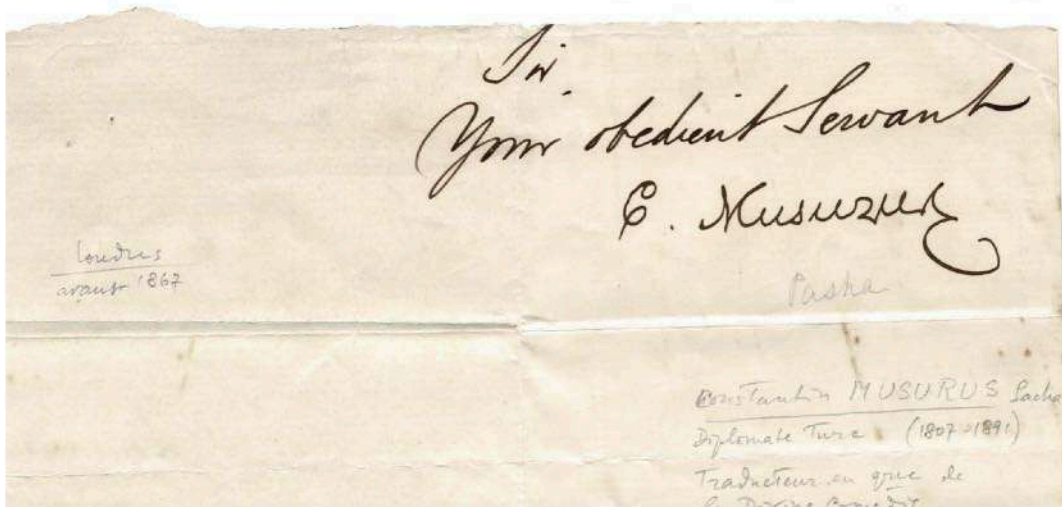 Sir.
Your obedient Servant
C. Musurus
Londres
avant 1867
Pasha
Constantin MUSURUS Pacha
Diplomate Turc (1807-1891)
Traducteur en grec de
la Divine Comédie